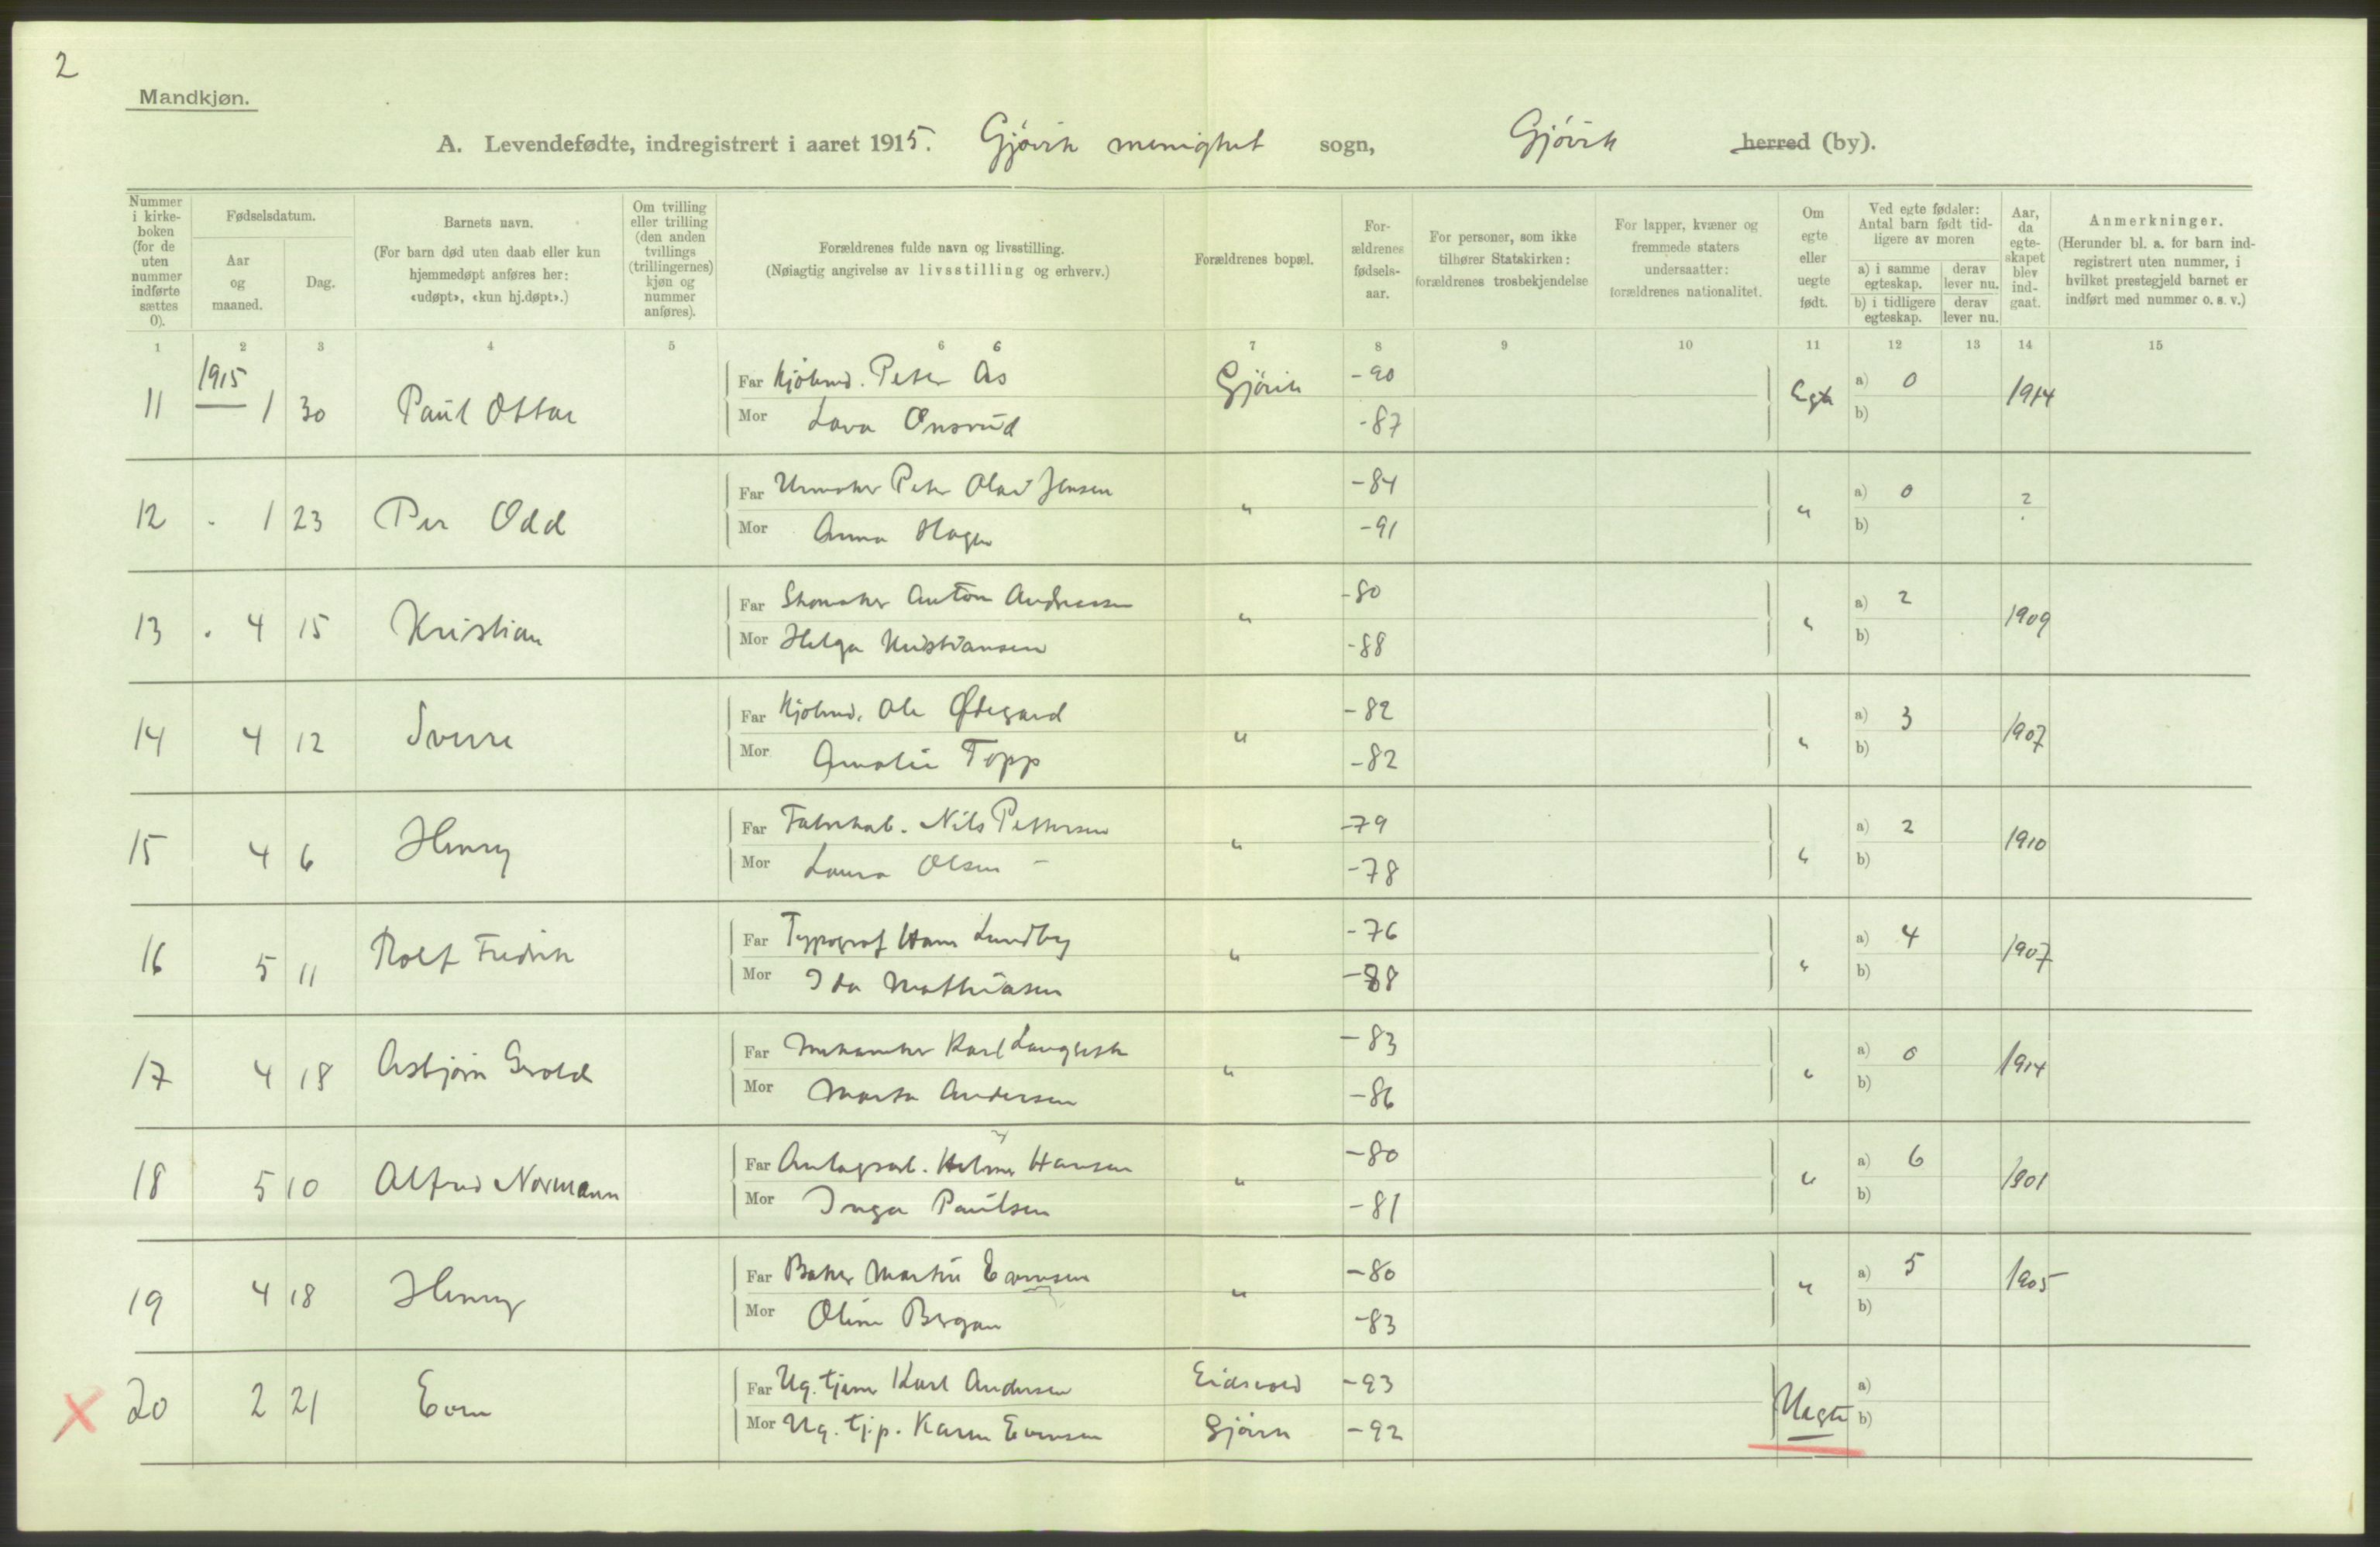 2
Mandkjøn.
A. Levendefødte, indregistrert i aaret 1915. Gjøvik menighet sogn, Gjøvik herred (by).
Nummer i kirke-boken (for de uten nummer indførte sættes 0).
Fødselsdatum.
Aar og maaned.
Dag.
Barnets navn.
(For barn død uten daab eller kun hjemmedøpt anføres her: «udøpt», «kun hj.døpt».)
Om tvilling eller trilling (den anden tvillings (trillingernes) kjøn og nummer anføres).
Forældrenes fulde navn og livsstilling.
(Nøiagtig angivelse av livsstilling og erhverv.)
Forældrenes bopæl.
For-ældrenes fødsels-aar.
For personer, som ikke tilhører Statskirken: forældrenes trosbekjendelse
For lapper, kvæner og fremmede staters undersaatter: forældrenes nationalitet.
Om egte eller uegte født.
Ved egte fødsler: Antal barn født tid-ligere av moren
a) i samme egteskap.
derav lever nu.
b) i tidligere egteskap.
derav lever nu.
Aar, da egte-skapet blev ind-gaat.
Anmerkninger.
(Herunder bl. a. for barn ind-registrert uten nummer, i hvilket prestegjeld barnet er indført med nummer o. s. v.)
1 2 3 4 5 6 6 7 8 9 10 11 12 13 14 15
1915
11 1 30 Paul Ottar Far Kjøbmd. Peter Ås Gjøvik -90 Egte a) 0 1914
Mor Lava Onsrud -87 b)
12 " 1 23 Per Odd Far Urmaker Peter Olav Jensen " -84 " a) 0 ?
Mor Anna Hagen -91 b)
13 " 4 15 Kristian Far Skomaker Anton Andreassen " -80 " a) 2 1909
Mor Helga Kristiansen -88 b)
14 4 12 Sverre Far Kjøbmd. Ole Ødegard " -82 " a) 3 1907
Mor Amalie Topp -82 b)
15 4 6 Henry Far Fabrikarb. Nils Pettersen " -79 " a) 2 1910
Mor Laura Olsen - -78 b)
16 5 11 Rolf Fredrik Far Typograf Hans Lundby " -76 " a) 4 1907
Mor Ida Mathiasen -88 b)
17 4 18 Asbjørn Gerold Far Mekaniker Karl " -83 " a) 0 1914
Mor Marta Andersen -86 b)
18 5 10 Alfred Normann Far Anlægsarb. Helmer Hansen " -80 " a) 6 1901
Mor Inga Paulsen -81 b)
19 4 18 Henry Far Baker Martin Evensen " -80 " a) 5 1905
Mor Oline Bergan -83 b)
x 20 2 21 Even Far Ug. tjener Karl Andersen Eidsvold -93 Uegte a)
Mor Ug. tj.p. Karen Evensen Gjøvik -92 b)